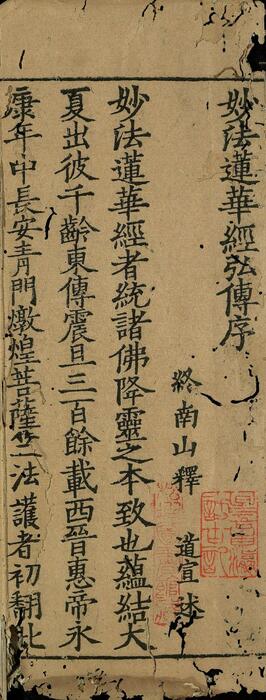 妙法蓮華經弘傳序
終南山釋 道宣 述
妙法蓮華經者統諸佛降靈之本致也蘊結大
夏出彼千齡東傳震旦三百餘載西晉惠帝永
康年中長安青門燉煌菩薩竺法護者初翻此